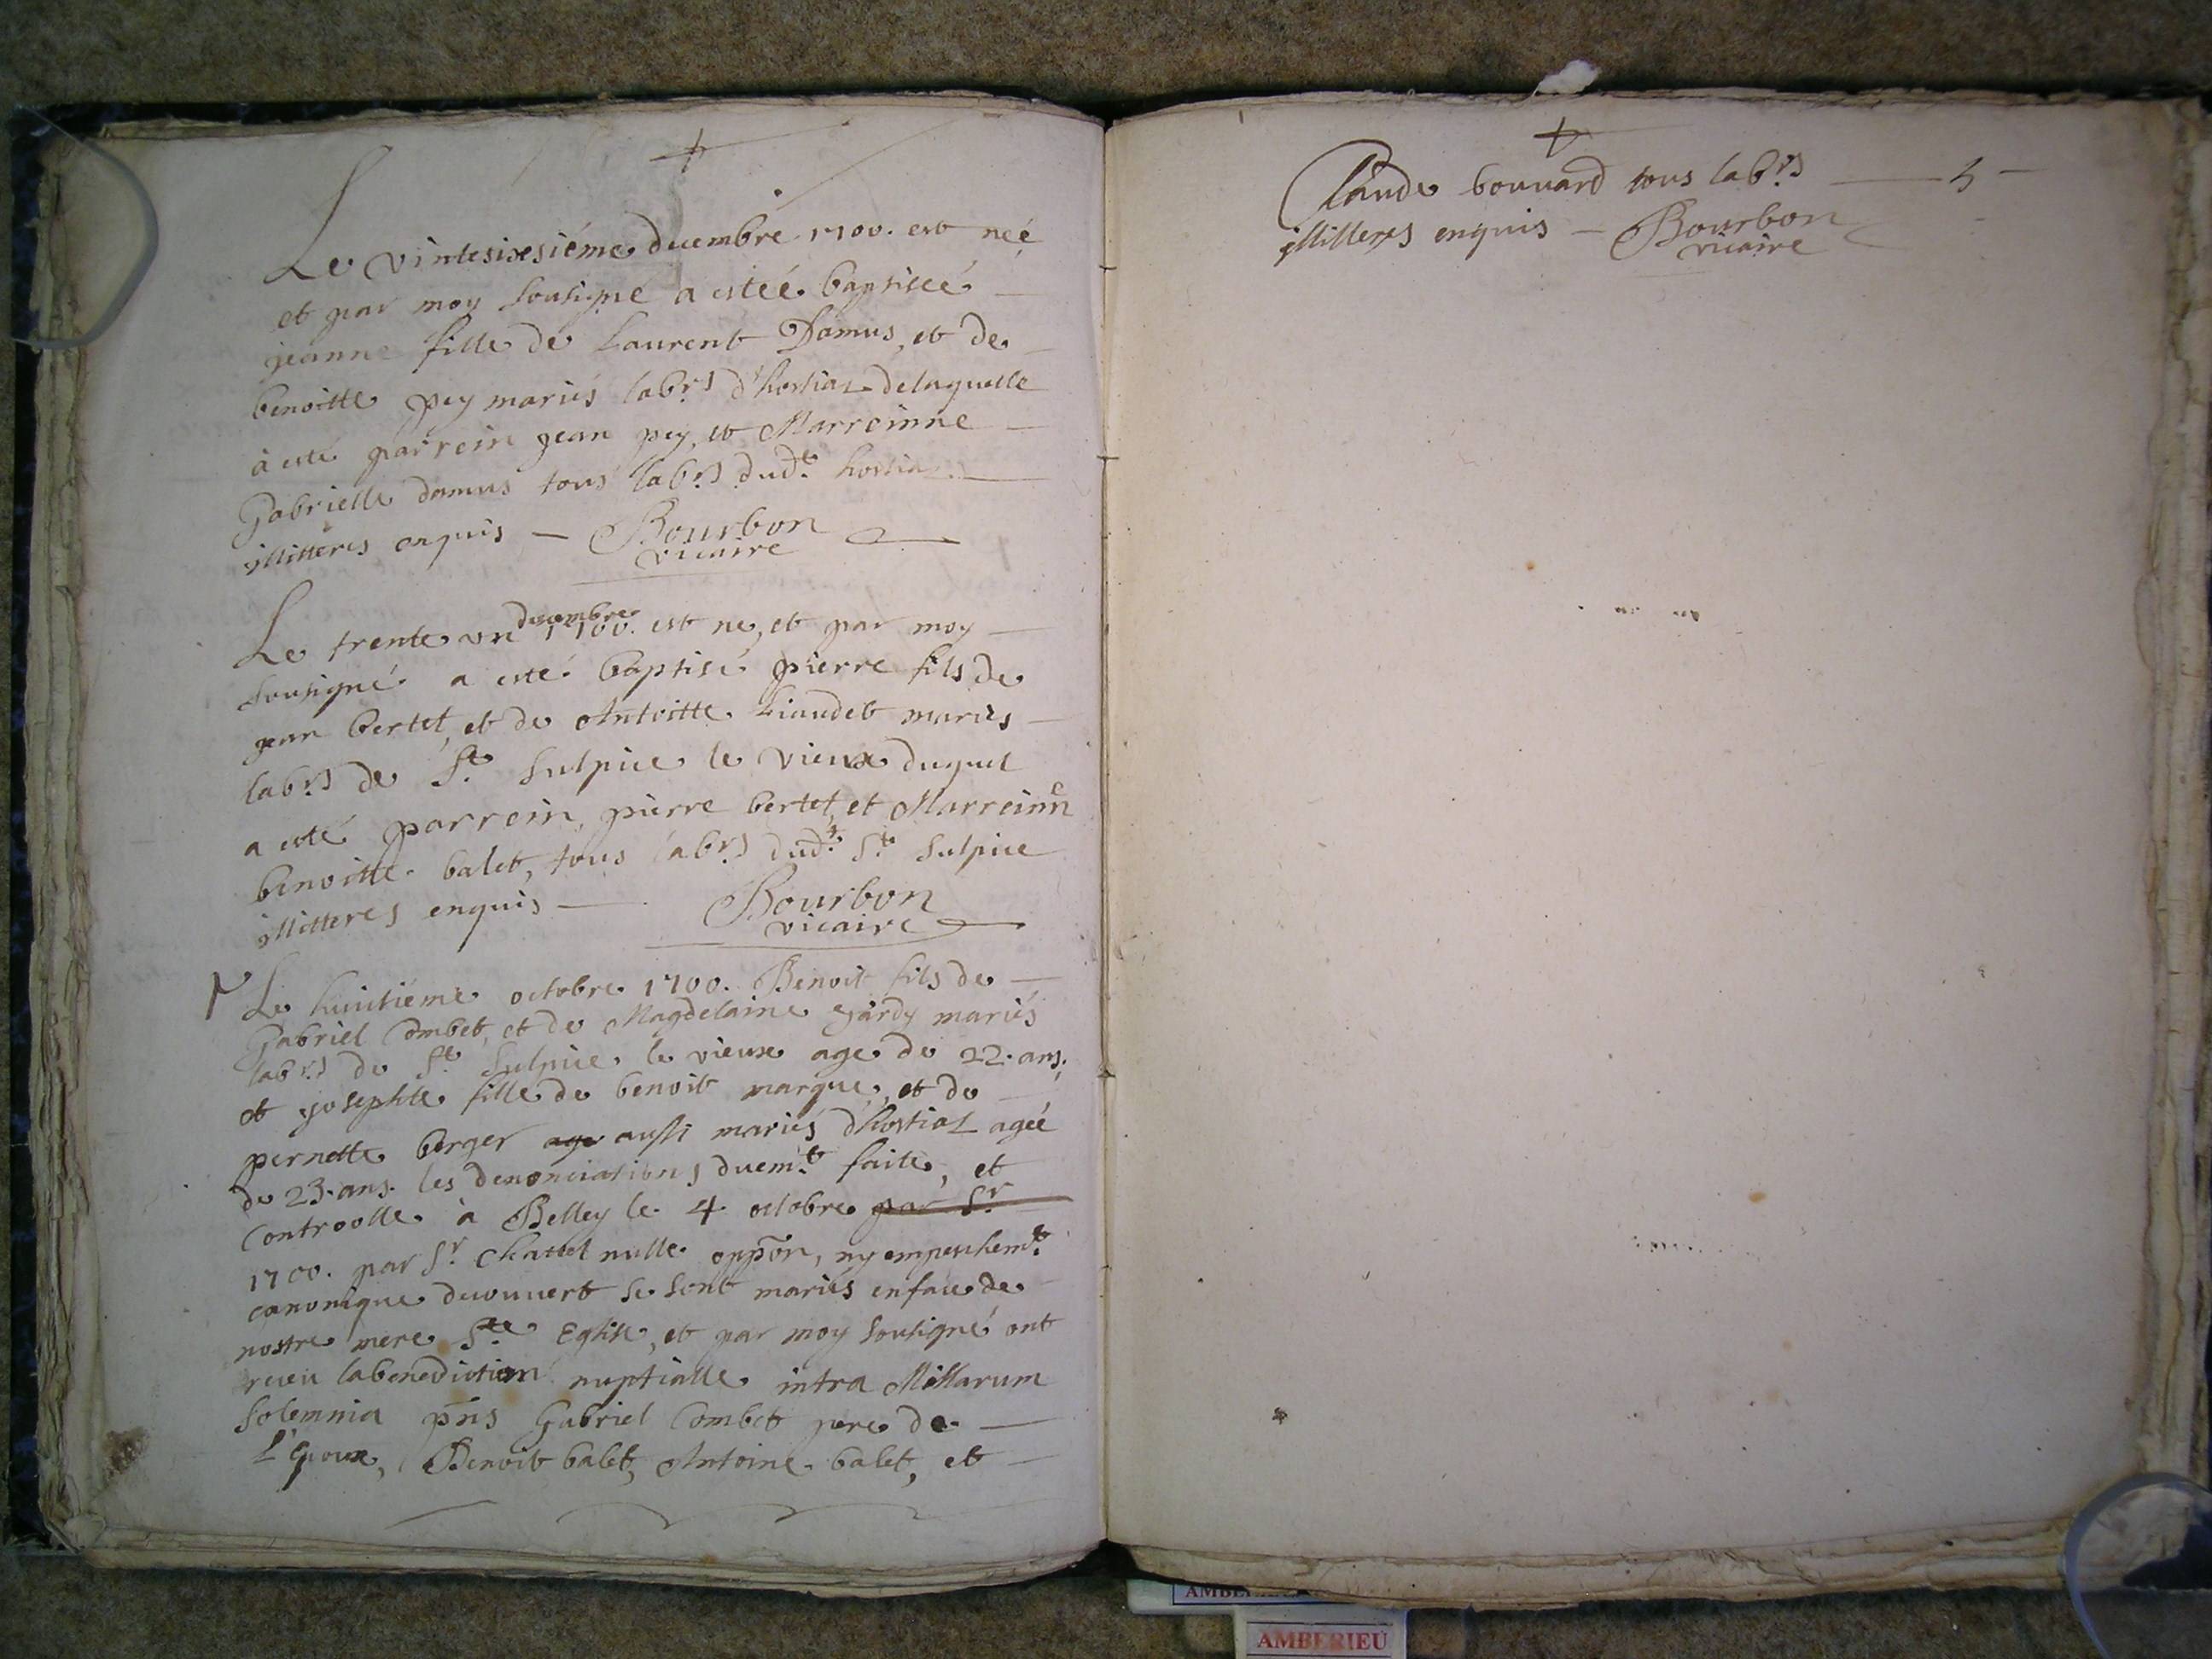 Le vintesixsiéme decembre 1700. est neé
et par moy sousigné a estéé baptiseé
jeanne fille de Laurent Damus, et de
benoitte pey mariés lab.rs d'hostiaz delaquelle
à esté parrein jean pey, et Marreinne
Gabrielle damus tous lab.rs dud.t hostiaz
illitteres enquis — Bourbon
vicaire
decembre
Le trente un 1700. est ne, et par moy
sousigné a esté baptisé pierre fils de
jean bertet, et de Antoitte Liaudet mariés
lab.rs de S.t Sulpice le vieux duquel
a esté parrein, pierre bertet, et Marreinne
benoitte balet, tous lab.rs dud.t S.t Sulpice
illitteres enquis — Bourbon
vicaire
Le huitiéme octobre 1700. Benoit fils de
Gabriel Combet, et de Magdelaine jardy mariés
lab.rs de S.t Sulpice le vieux age de 22. ans.
et josephte fille de benoit marque, et de
pernette berger age aussi mariés d'hostiaz ageé
de 23. ans. les denonciations duem.t faite, et
Controolle à Belley le 4 octobre par S.r
1700. par S.r Chattel nulle oppõn, ny empeschem.t
canonique decouuert se sont mariés enface de
nostre mere S.te Eglise, et par moy sousigné ont
receu labenediction nuptialle intra Missarum
Solemnia pñs Gabriel Combet pere de
L'Epoux, Benoit balet, Antoine balet, et
Claude bouuard tous lab.rs
illitteres enquis — Bourbon
vicaire
AMBERIEU